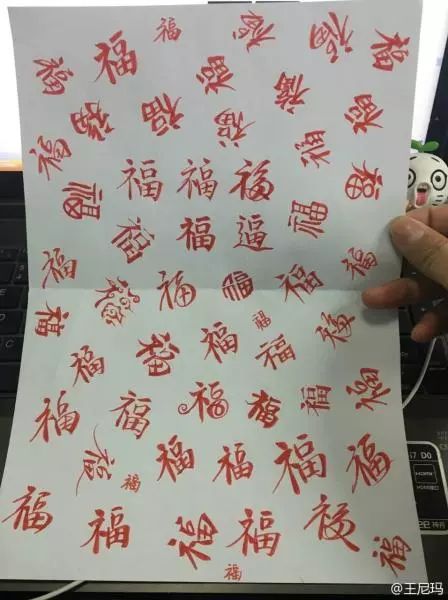 福福福福
福福福福
福福福福福
福福福福福
福福福逼福
福福福福福福
福福福福福
福福
福福福福福福
福福福福福福
福福福福福福
福
HDMI
@王尼玛